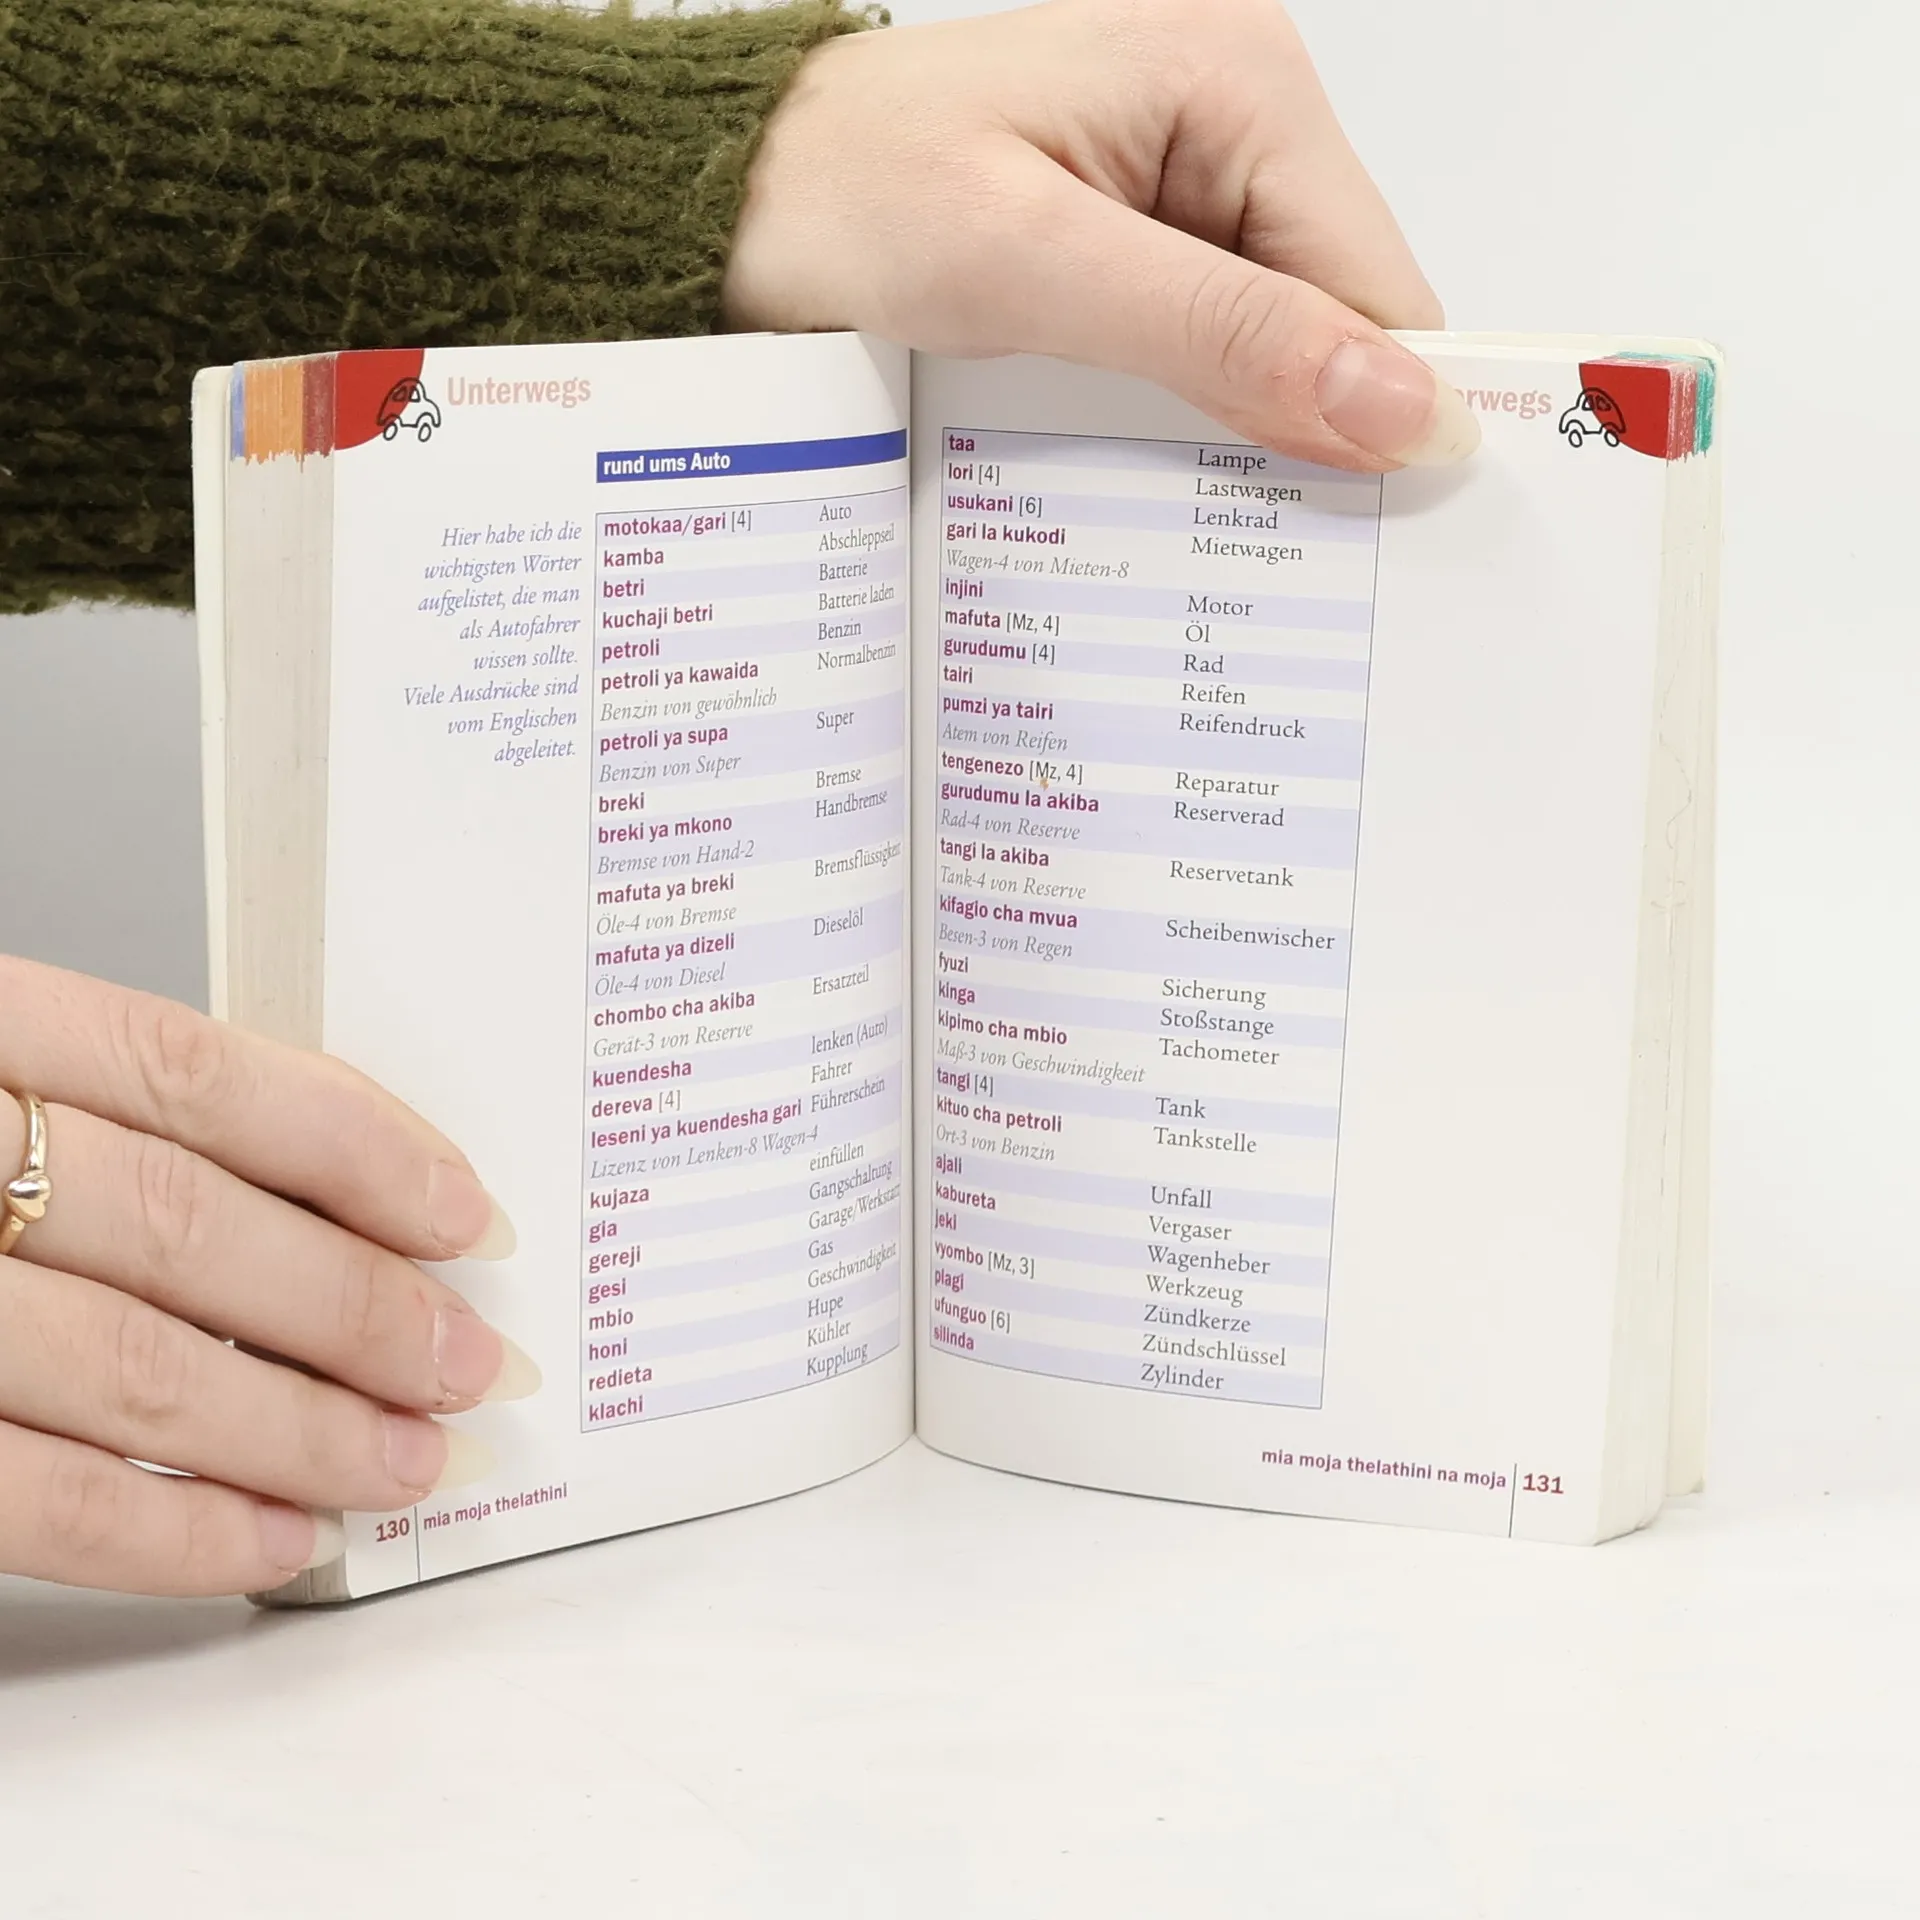 Unterwegs
rund ums Auto
Hier habe ich die
wichtigsten Wörter
aufgelistet, die man
als Autofahrer
wissen sollte.
Viele Ausdrücke sind
vom Englischen
abgeleitet.
motokaa/gari [4] Auto
kamba Abschleppseil
betri Batterie
kuchaji betri Batterie laden
petroli Benzin
petroli ya kawaida Normalbenzin
Benzin von gewöhnlich
petroli ya supa Super
Benzin von Super
breki Bremse
breki ya mkono Handbremse
Bremse von Hand-2
mafuta ya breki Bremsflüssigkeit
Öle-4 von Bremse
mafuta ya dizeli Dieselöl
Öle-4 von Diesel
chombo cha akiba Ersatzteil
Gerät-3 von Reserve
kuendesha lenken (Auto)
dereva [4] Fahrer
leseni ya kuendesha gari Führerschein
Lizenz von Lenken-8 Wagen-4
kujaza einfüllen
gia Gangschaltung
gereji Garage/Werkstatt
gesi Gas
mbio Geschwindigkeit
honi Hupe
redieta Kühler
klachi Kupplung
130 mia moja thelathini
rwegs
taa Lampe
lori [4] Lastwagen
usukani [6] Lenkrad
gari la kukodi Mietwagen
Wagen-4 von Mieten-8
injini Motor
mafuta [Mz, 4] Öl
gurudumu [4] Rad
tairi Reifen
pumzi ya tairi Reifendruck
Atem von Reifen
tengenezo [Mz, 4] Reparatur
gurudumu la akiba Reserverad
Rad-4 von Reserve
tangi la akiba Reservetank
Tank-4 von Reserve
kifagio cha mvua Scheibenwischer
Besen-3 von Regen
fyuzi Sicherung
kinga Stoßstange
kipimo cha mbio Tachometer
Maß-3 von Geschwindigkeit
tangi [4] Tank
kituo cha petroli Tankstelle
Ort-3 von Benzin
ajali Unfall
kabureta Vergaser
jeki Wagenheber
vyombo [Mz, 3] Werkzeug
plagi Zündkerze
ufunguo [6] Zündschlüssel
silinda Zylinder
mia moja thelathini na moja 131